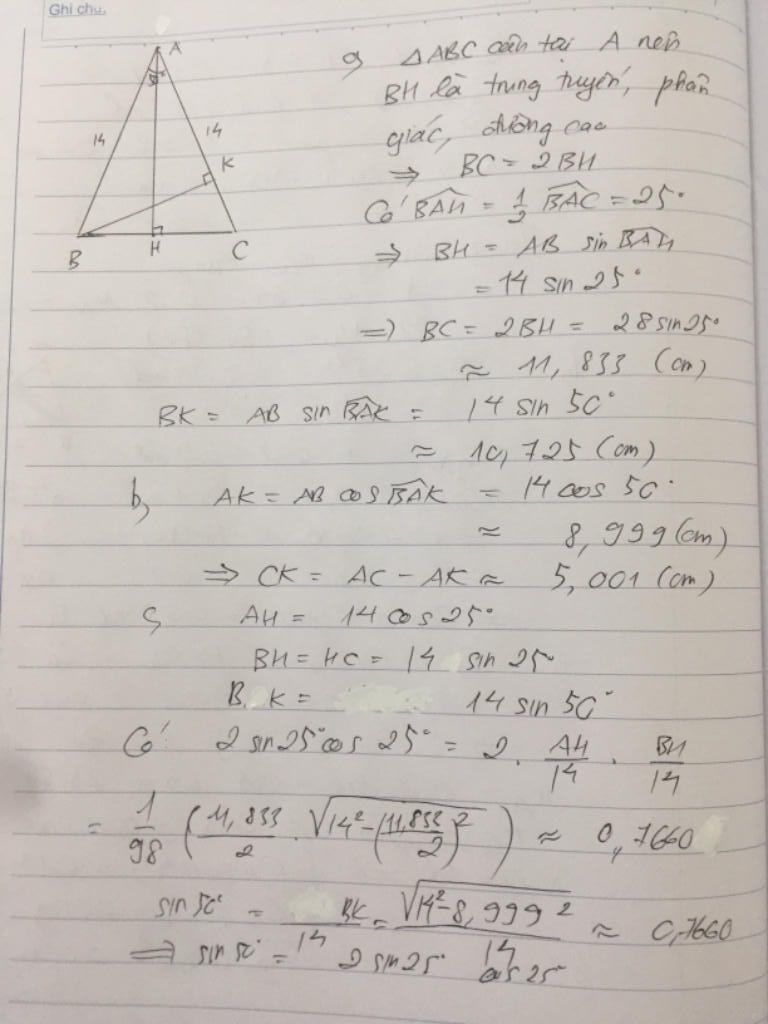 Ghi chú.
A
50°
14
14
K
B
H
C
a, ΔABC cân tại A nên
BH là trung tuyến, phân
giác, đường cao
⇒ BC = 2BH
Có BAH = 1/2 BAC = 25°
⇒ BH = AB sin BAH
= 14 sin 25°
⇒ BC = 2BH = 28 sin 25°
≈ 11,833 (cm)
BK = AB sin BAK = 14 sin 50°
≈ 10,725 (cm)
b, AK = AB cos BAK = 14 cos 50°
≈ 8,999 (cm)
⇒ CK = AC - AK ≈ 5,001 (cm)
c, AH = 14 cos 25°
BH = HC = 14 sin 25°
BK = 14 sin 50°
Có 2 sin 25° cos 25° = 2 . AH/14 . BH/14
= 1/98 (11,833/2 . √(14² - (11,833/2)²)) ≈ 0,7660
sin 50° = BK/14 = √(14² - 8,999²)/14 ≈ 0,7660
⇒ sin 50° = 2 sin 25° cos 25°